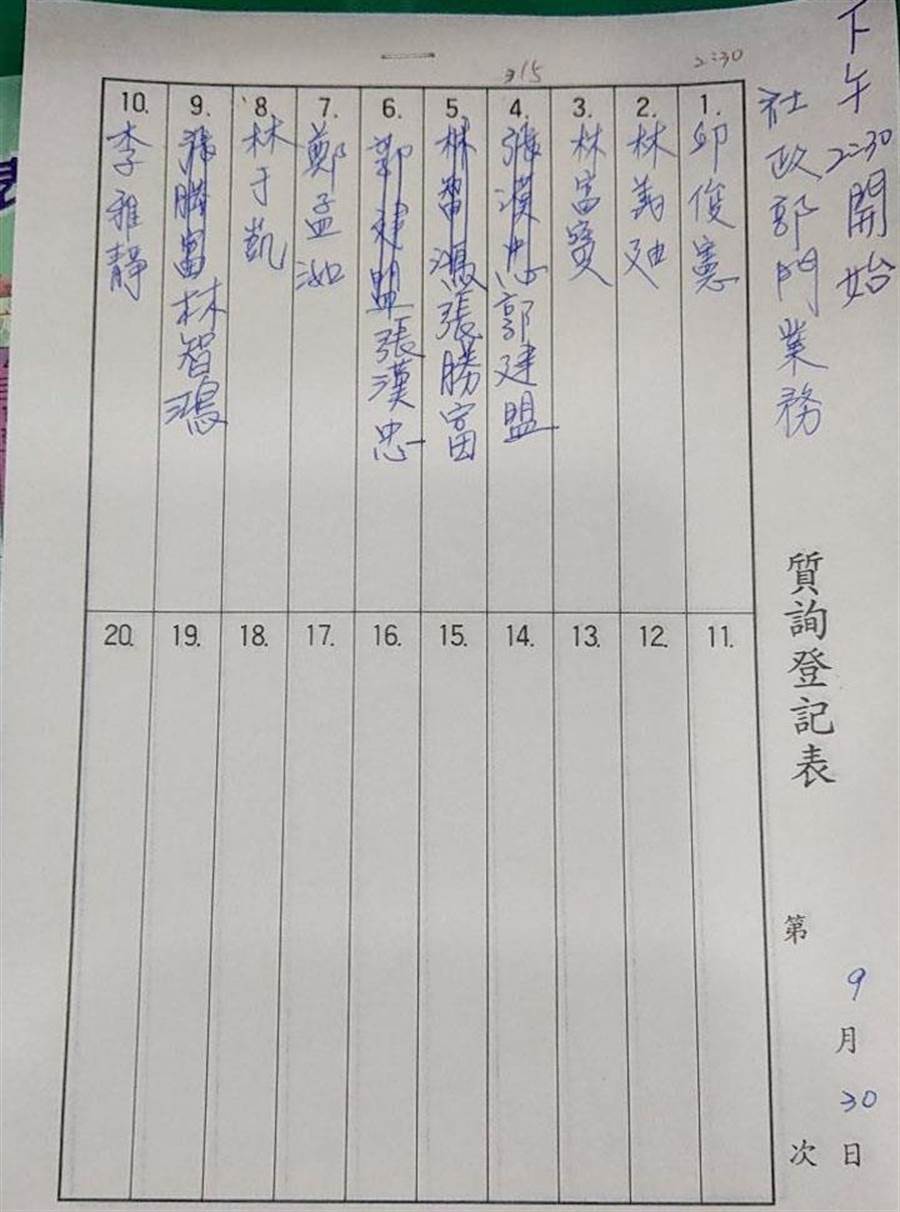 下午2:30開始
社政部門業務
質詢登記表
第 次
9月30日
2:30
315
1. 邱俊憲
2. 林義迪
3. 林富寶
4. 張漢忠 郭建盟
5. 林智鴻 張勝富
6. 郭建盟 張漢忠
7. 鄭孟洳
8. 林于凱
9. 張勝富 林智鴻
10. 李雅靜
11.
12.
13.
14.
15.
16.
17.
18.
19.
20.